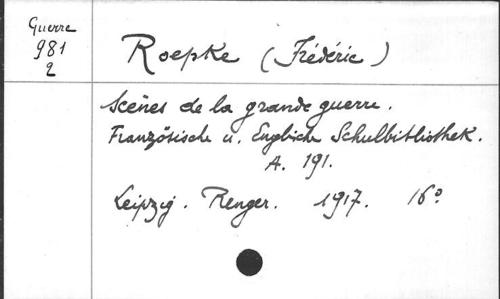 Guerre
981
2
Roepke (Frédéric)
Scènes de la grande guerre.
Französische u. Englische Schulbibliothek.
A. 191.
Leipzig. Renger. 1917. 16°